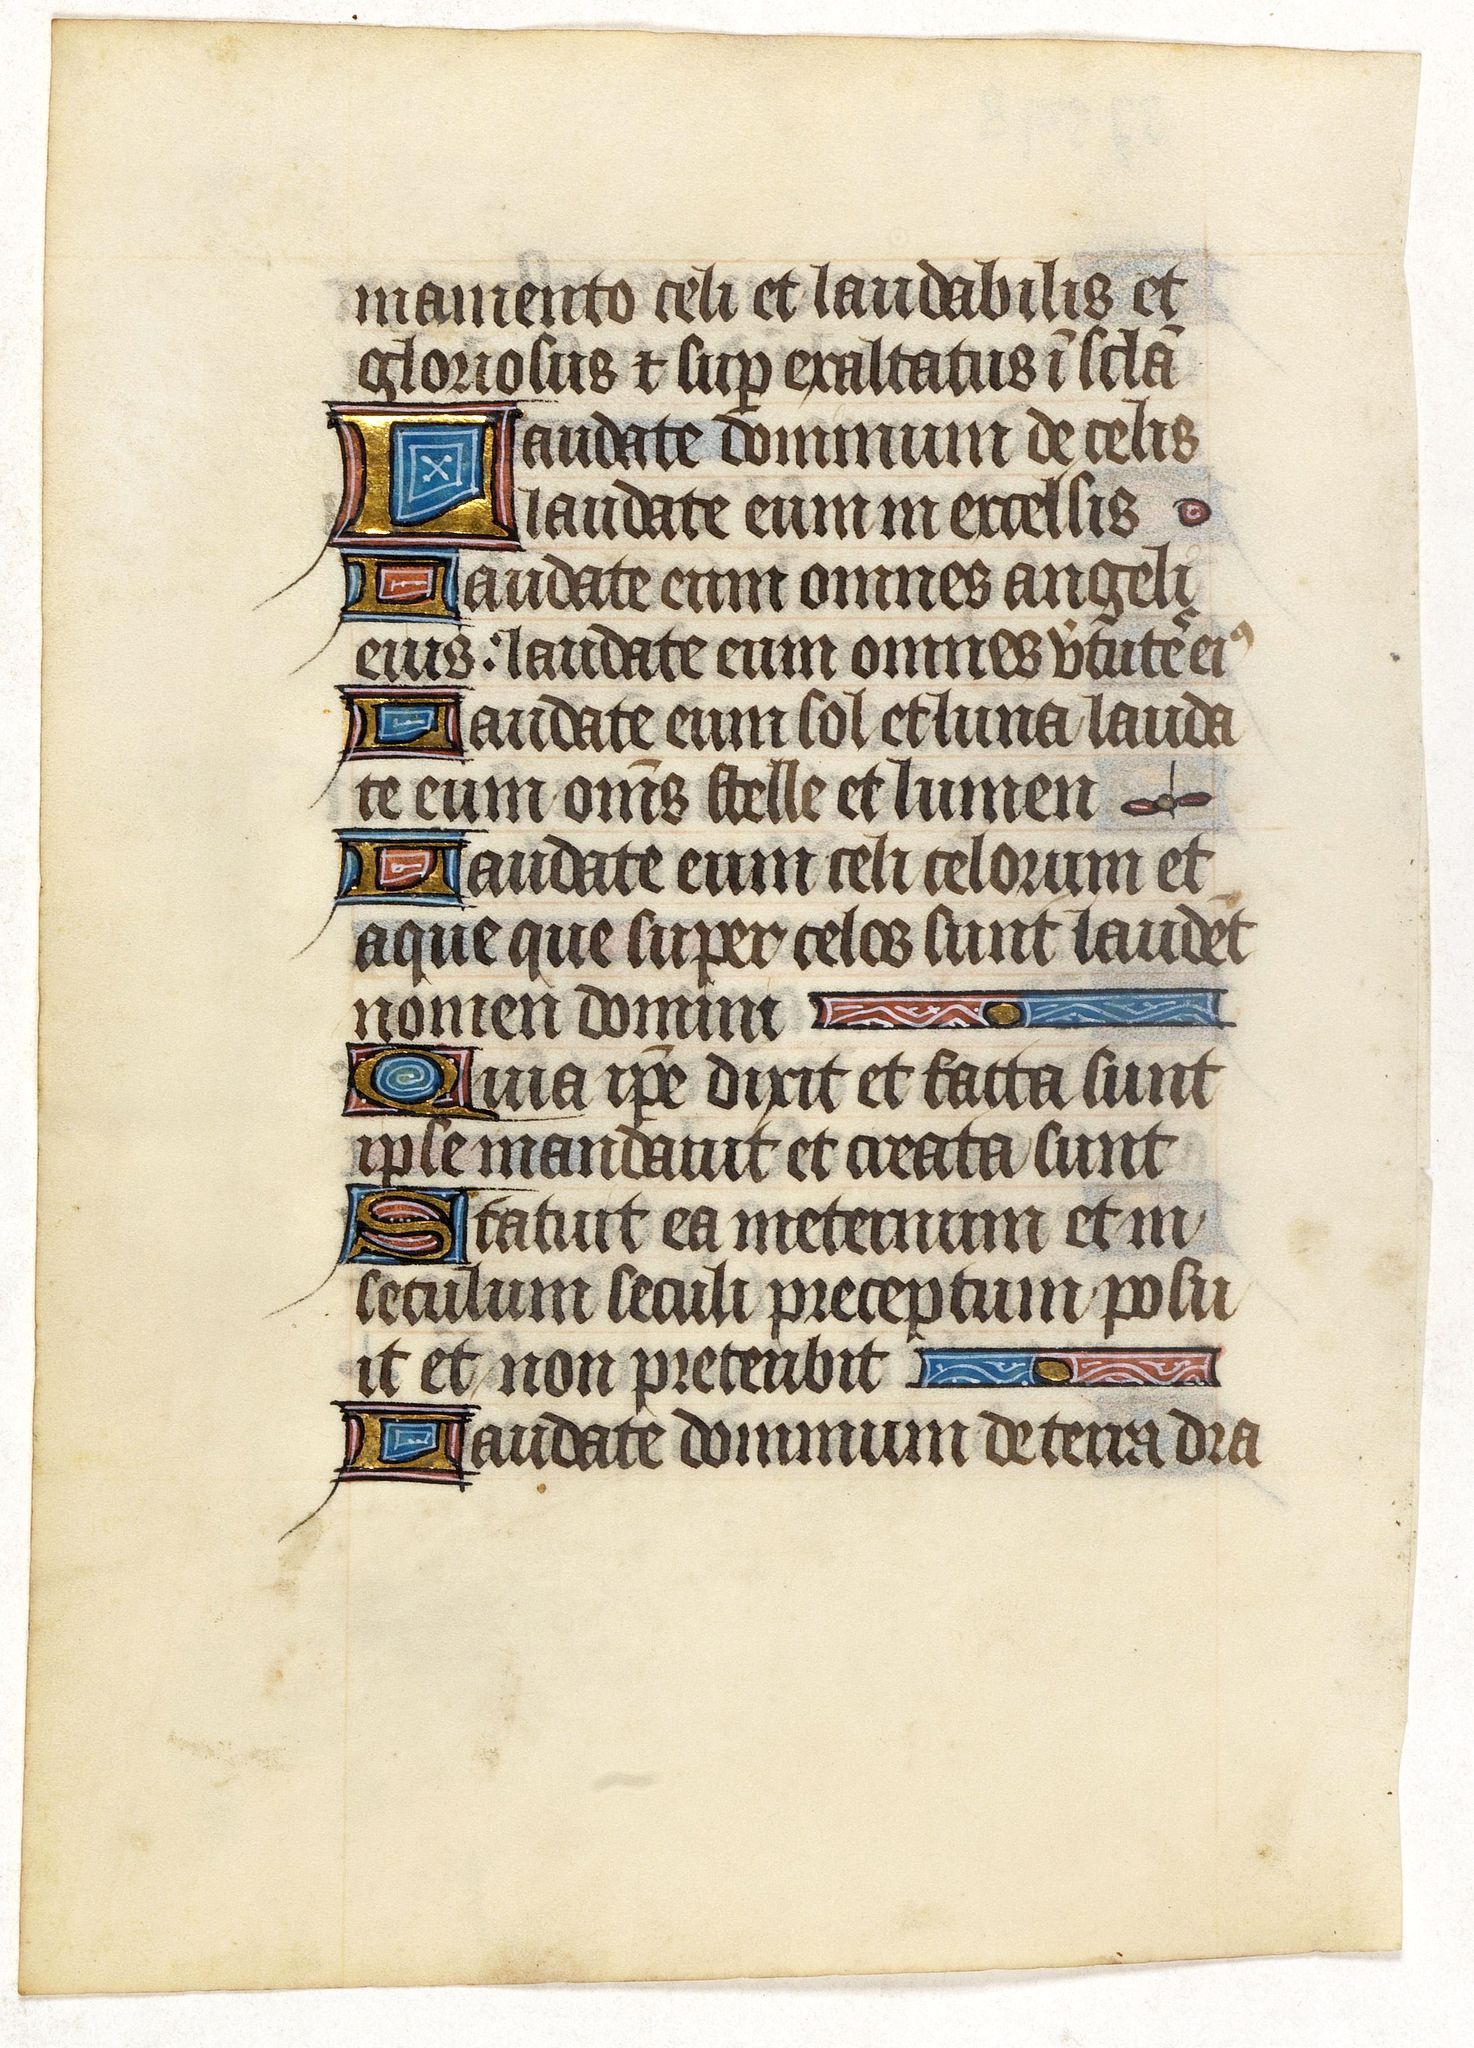 mamento celi et laudabilis et
gloriosus ⁊ sup exaltatus ī sclā
Laudate dominum de celis
laudate eum in excelsis
Laudate eum omnes angeli
eius : laudate eum omnes v̾tutē eiꝰ
Laudate eum sol et luna lauda
te eum om̄s stelle et lumen
Laudate eum celi celorum et
aque que super celos sunt laudēt
nomen domini
Quia ip̄e dixit et facta sunt
ipse mandauit et creata sunt
Statuit ea ineternum et in
seculum seculi preceptum posu
it et non preteribit
Laudate dominum de terra dra